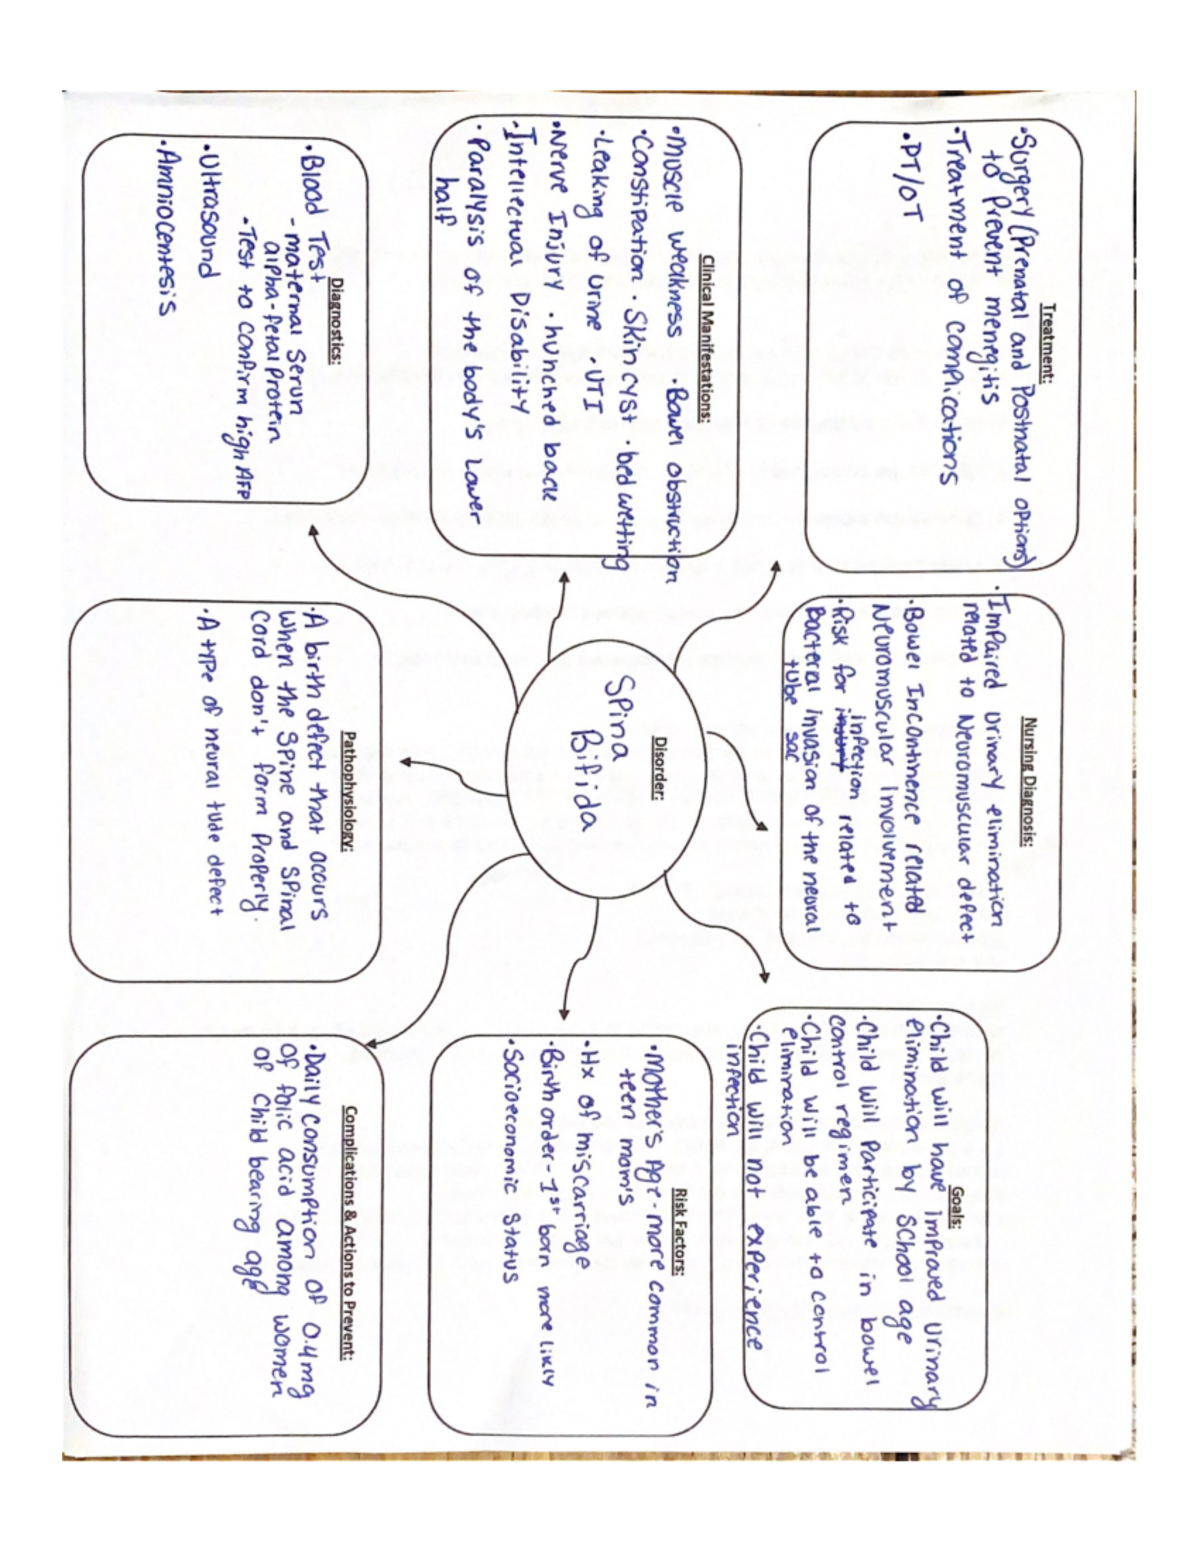 Treatment:
•Surgery (Prenatal and Postnatal options)
to prevent menigitis
•Treatment of complications
•PT/OT
Nursing Diagnosis:
•Impaired urinary elimination
related to Neuromuscular defect
•Bowel Incontinence related
Neuromuscular involvement
•Risk for infection related to
bacteral invasion of the neural
tube sac
Goals:
•Child will have improved urinary
elimination by school age
•Child will participate in bowel
control regimen
•Child will be able to control
elimination
•Child will not experience
infection
Clinical Manifestations:
•muscle weakness •Bowel obstruction
•Constipation •Skin cyst •bed wetting
•Leaking of urine •UTI
•Nerve Injury •hunched back
•Intellectual Disability
•Paralysis of the body's lower
half
Disorder:
Spina
Bifida
Risk Factors:
•Mother's Age - more common in
teen mom's
•Hx of miscarriage
•Birth order - 1st born more likly
•Socioeconomic status
Diagnostics:
•Blood Test
- maternal serun
alpha-fetal protein
•Test to confirm high AFP
•Ultrasound
•Amniocentesis
Pathophysiology:
•A birth defect that occurs
when the spine and spinal
cord don't form properly.
•A type of neural tude defect
Complications & Actions to Prevent:
•Daily consumption of 0.4mg
of folic acid among women
of child bearing age